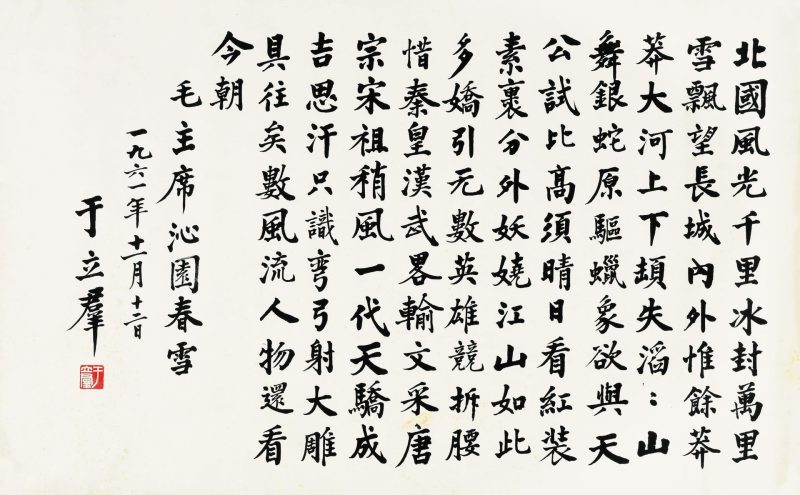 北國風光千里冰封萬里
雪飄望長城內外惟餘莽
莽大河上下頓失滔：山
舞銀蛇原驅蠟象欲與天
公試比高須晴日看紅裝
素裹分外妖嬈江山如此
多嬌引无數英雄競折腰
惜秦皇漢武畧輸文采唐
宗宋祖稍風一代天驕成
吉思汗只識彎弓射大雕
具往矣數風流人物還看
今朝
毛主席沁園春雪
一九六一年十一月十二日
于立羣